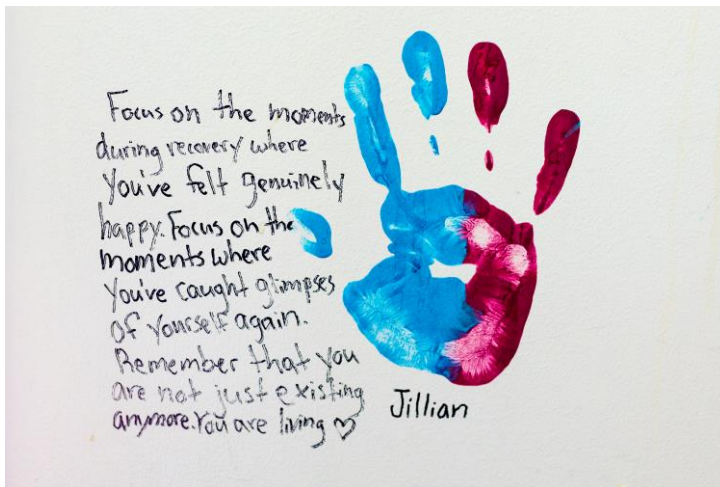 Focus on the moments
during recovery where
You've felt genuinely
happy. Focus on the
moments where
You've caught glimpses
of Yourself again.
Remember that you
are not just existing
anymore. You are living ♡
Jillian